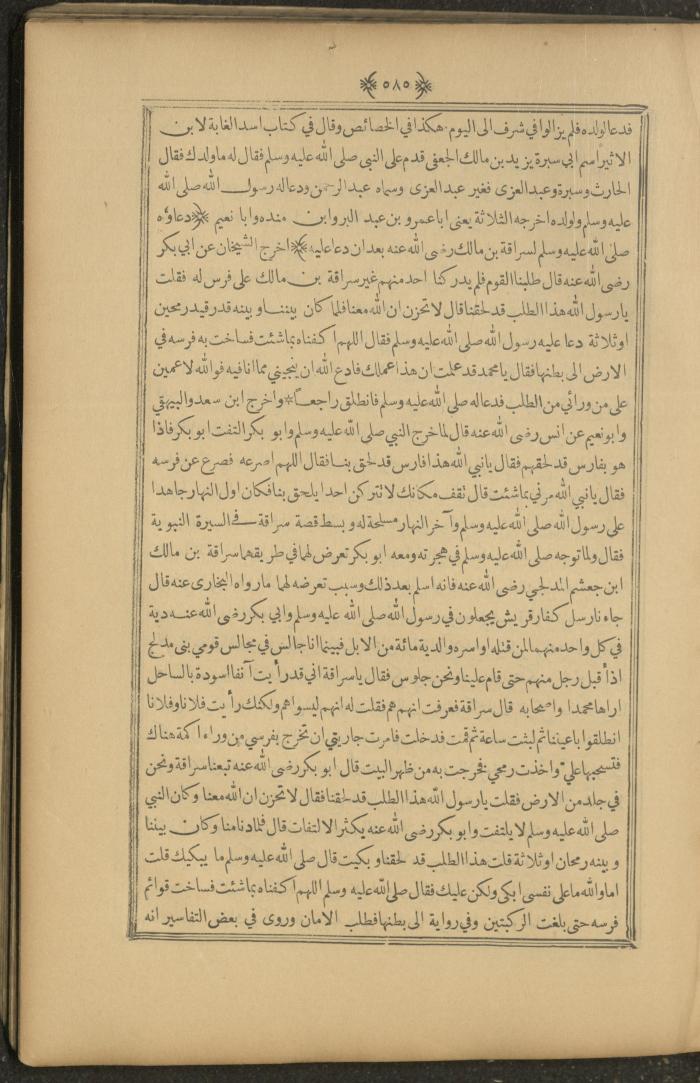 ٥٨٥
فدعا لولده فلم يزالوا في شرف الى اليوم. هكذا في الخصائص وقال في كتاب اسد الغابة لابن
الاثير اسم ابي سبرة يزيد بن مالك الجعفى قدم على النبي صلى الله عليه وسلم فقال له ما ولدك فقال
الحارث وسبرة وعبد العزى فغير عبد العزى وسماه عبد الرحمن ودعا له رسول الله صلى الله
عليه وسلم ولولده اخرجه الثلاثة يعنى ابا عمرو بن عبد البر وابن منده وابا نعيم ﴿دعاؤه
صلى الله عليه وسلم لسراقة بن مالك رضى الله عنه بعد ان دعا عليه﴾ اخرج الشيخان عن ابي بكر
رضى الله عنه قال طلبنا القوم فلم يدركنا احد منهم غير سراقة بن مالك على فرس له فقلت
يا رسول الله هذا الطلب قد لحقنا قال لا تحزن ان الله معنا فلما كان بيننا وبينه قدر قيد رمحين
او ثلاثة دعا عليه رسول الله صلى الله عليه وسلم فقال اللهم اكفناه بما شئت فساخت به فرسه في
الارض الى بطنها فقال يا محمد قد علمت ان هذا عملك فادع الله ان ينجيني مما انا فيه فوالله لاعمين
على من ورائي من الطلب فدعا له صلى الله عليه وسلم فانطلق راجعاً * واخرج ابن سعد والبيهقي
وابو نعيم عن انس رضى الله عنه قال لما خرج النبي صلى الله عليه وسلم وابو بكر التفت ابو بكر فاذا
هو بفارس قد لحقهم فقال يا نبي الله هذا فارس قد لحق بنا فقال اللهم اصرعه فصرع عن فرسه
فقال يا نبي الله مرني بما شئت قال تقف مكانك لا تتركن احدا يلحق بنا فكان اول النهار جاهدا
على رسول الله صلى الله عليه وسلم وآخر النهار مسلحة له وبسط قصة سراقة في السيرة النبوية
فقال ولما توجه صلى الله عليه وسلم في هجرته ومعه ابو بكر تعرض لهما في طريقهما سراقة بن مالك
ابن جعشم المدلجي رضى الله عنه فانه اسلم بعد ذلك وسبب تعرضه لهما ما رواه البخارى عنه قال
جاءنا رسل كفار قريش يجعلون في رسول الله صلى الله عليه وسلم وابي بكر رضى الله عنه دية
في كل واحد منهما لمن قتله او اسره والدية مائة من الابل فبينما انا جالس في مجالس قومي بنى مدلج
اذ أقبل رجل منهم حتى قام علينا ونحن جلوس فقال يا سراقة اني قد رأيت آنفا اسودة بالساحل
اراها محمدا واصحابه قال سراقة فعرفت انهم هم فقلت له انهم ليسوا هم ولكنك رأيت فلانا وفلانا
انطلقوا باعيننا ثم لبثت ساعة ثم قمت فدخلت فامرت جاريتي ان تخرج بفرسي من وراء اكمة هناك
فتسحبها عليّ واخذت رمحي فخرجت به من ظهر البيت قال ابو بكر رضى الله عنه تبعنا سراقة ونحن
في جلد من الارض فقلت يا رسول الله هذا الطلب قد لحقنا فقال لا تحزن ان الله معنا وكان النبي
صلى الله عليه وسلم لا يلتفت وابو بكر رضى الله عنه يكثر الالتفات قال فلما دنا منا وكان بيننا
وبينه رمحان او ثلاثة قلت هذا الطلب قد لحقنا وبكيت قال صلى الله عليه وسلم ما يبكيك قلت
اما والله ما على نفسى ابكى ولكن عليك فقال صلى الله عليه وسلم اللهم اكفناه بما شئت فساخت قوائم
فرسه حتى بلغت الركبتين وفي رواية الى بطنها فطلب الامان وروى في بعض التفاسير انه